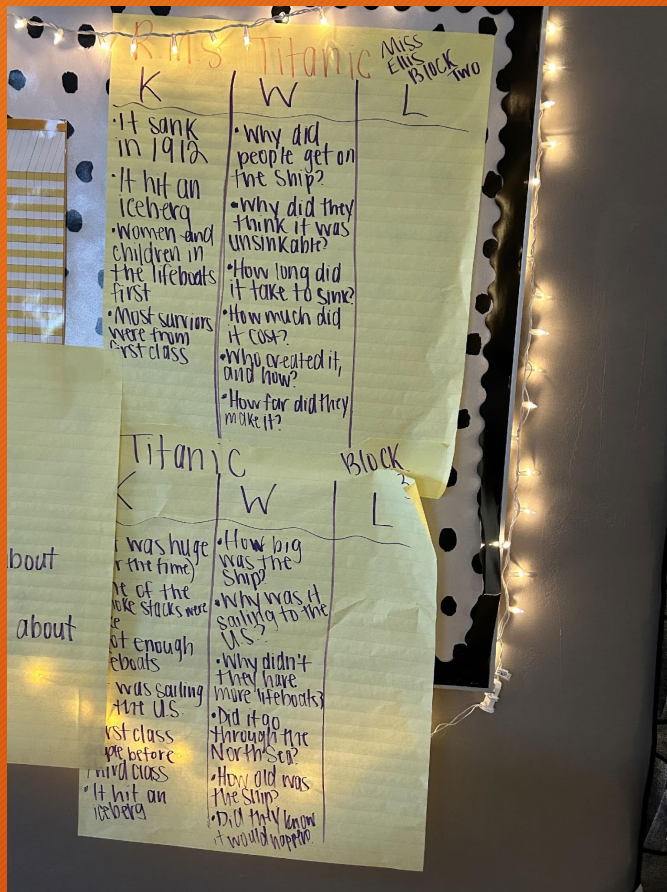 R.M.S Titanic
Miss
Ellis
Block
Two
K
W
L
• It sank
in 1912
• It hit an
iceberg
• Women and
children in
the lifeboats
first
• Most surviors
were from
first class
• Why did
people get on
the ship?
• Why did they
think it was
unsinkable?
• How long did
it take to sink?
• How much did
it cost?
• Who created it,
and how?
• How far did they
make it?
about
about
Titanic
Block
W
L
was huge
the time)
of the
stacks were
enough
was sailing
the U.S.
class
before
Third class
• It hit an
iceberg
• How big
was the
ship?
• Why was it
sailing to the
U.S.?
• Why didn't
they have
more lifeboats?
• Did it go
through the
North Sea?
• How old was
the ship?
• Did they know
it would happen